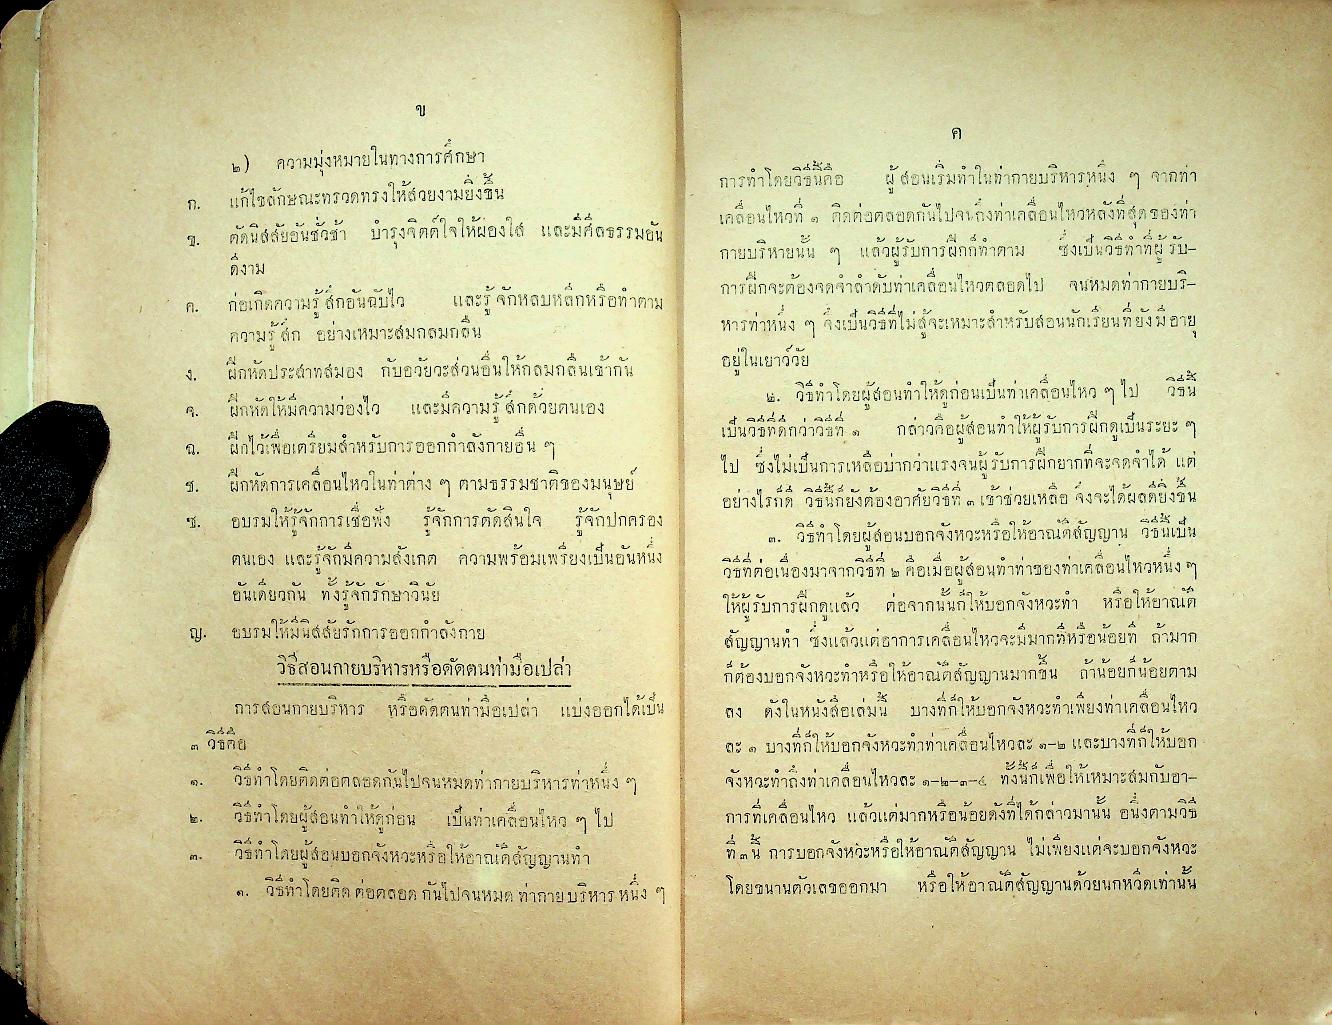 ข
๒) ความมุ่งหมายในทางการศึกษา
ก. แก้ไขลักษณะทรวดทรงให้สวยงามยิ่งขึ้น
ข. ดัดนิสสัยอันชั่วช้า บำรุงจิตต์ใจให้ผ่องใส และมีศีลธรรมอัน
ดีงาม
ค. ก่อเกิดความรู้สึกอันฉับไว และรู้จักหลบหลีกหรือทำตาม
ความรู้สึก อย่างเหมาะสมกลมกลืน
ง. ฝึกหัดประสาทสมอง กับอวัยวะส่วนอื่นให้กลมกลืนเข้ากัน
จ. ฝึกหัดให้มีความว่องไว และมีความรู้สึกด้วยตนเอง
ฉ. ฝึกไว้เพื่อเตรียมสำหรับการออกกำลังกายอื่น ๆ
ช. ฝึกหัดการเคลื่อนไหวในท่าต่าง ๆ ตามธรรมชาติของมนุษย์
ซ. อบรมให้รู้จักการเชื่อฟัง รู้จักการตัดสินใจ รู้จักปกครอง
ตนเอง และรู้จักมีความสังเกต ความพร้อมเพรียงเป็นอันหนึ่ง
อันเดียวกัน ทั้งรู้จักรักษาวินัย
ญ. อบรมให้มีนิสสัยรักการออกกำลังกาย
วิธีสอนกายบริหารหรือดัดตนท่ามือเปล่า
การสอนกายบริหาร หรือดัดตนท่ามือเปล่า แบ่งออกได้เป็น
๓ วิธีคือ
๑. วิธีทำโดยติดต่อตลอดกันไปจนหมดท่ากายบริหารท่าหนึ่ง ๆ
๒. วิธีทำโดยผู้สอนทำให้ดูก่อน เป็นท่าเคลื่อนไหว ๆ ไป
๓. วิธีทำโดยผู้สอนบอกจังหวะหรือให้อาณัติสัญญานทำ
๑. วิธีทำโดยติดต่อตลอดกันไปจนหมดท่ากายบริหารหนึ่ง ๆ
ค
การทำโดยวิธีนี้คือ ผู้สอนเริ่มทำในท่ากายบริหารหนึ่ง ๆ จากท่า
เคลื่อนไหวที่ ๑ ติดต่อตลอดกันไปจนถึงท่าเคลื่อนไหวหลังที่สุดของท่า
กายบริหายนั้น ๆ แล้วผู้รับการฝึกก็ทำตาม ซึ่งเป็นวิธีทำที่ผู้รับ-
การฝึกจะต้องจดจำลำดับท่าเคลื่อนไหวตลอดไป จนหมดท่ากายบริ-
หารท่าหนึ่ง ๆ จึงเป็นวิธีที่ไม่สู้จะเหมาะสำหรับสอนนักเรียนที่ยังมีอายุ
อยู่ในเยาว์วัย
๒. วิธีทำโดยผู้สอนทำให้ดูก่อนเป็นท่าเคลื่อนไหว ๆ ไป วิธีนี้
เป็นวิธีที่ดีกว่าวิธีที่ ๑ กล่าวคือผู้สอนทำให้ผู้รับการฝึกดูเป็นระยะ ๆ
ไป ซึ่งไม่เป็นการเหลือบ่ากว่าแรงจนผู้รับการฝึกยากที่จะจดจำได้ แต่
อย่างไรก็ดี วิธีนี้ก็ยังต้องอาศัยวิธีที่ ๓ เข้าช่วยเหลือ จึงจะได้ผลดียิ่งขึ้น
๓. วิธีทำโดยผู้สอนบอกจังหวะหรือให้อาณัติสัญญาน วิธีนี้เป็น
วิธีที่ต่อเนื่องมาจากวิธีที่ ๒ คือเมื่อผู้สอนทำท่าของท่าเคลื่อนไหวหนึ่ง ๆ
ให้ผู้รับการฝึกดูแล้ว ต่อจากนั้นก็ให้บอกจังหวะทำ หรือให้อาณัติ
สัญญานทำ ซึ่งแล้วแต่อาการเคลื่อนไหวจะมีมากทีหรือน้อยที ถ้ามาก
ก็ต้องบอกจังหวะทำหรือให้อาณัติสัญญานมากขึ้น ถ้าน้อยก็น้อยตาม
ลง ดังในหนังสือเล่มนี้ บางทีก็ให้บอกจังหวะทำเพียงท่าเคลื่อนไหว
ละ ๑ บางทีก็ให้บอกจังหวะทำท่าเคลื่อนไหวละ ๑-๒ และบางทีก็ให้บอก
จังหวะทำถึงท่าเคลื่อนไหวละ ๑-๒-๓-๔ ทั้งนี้ก็เพื่อให้เหมาะสมกับอา-
การที่เคลื่อนไหว แล้วแต่มากหรือน้อยดังที่ได้กล่าวมานั้น อนึ่งตามวิธี
ที่ ๓ นี้ การบอกจังหวะหรือให้อาณัติสัญญาน ไม่เพียงแต่จะบอกจังหวะ
โดยขนานตัวเลขออกมา หรือให้อาณัติสัญญานด้วยนกหวีดเท่านั้น